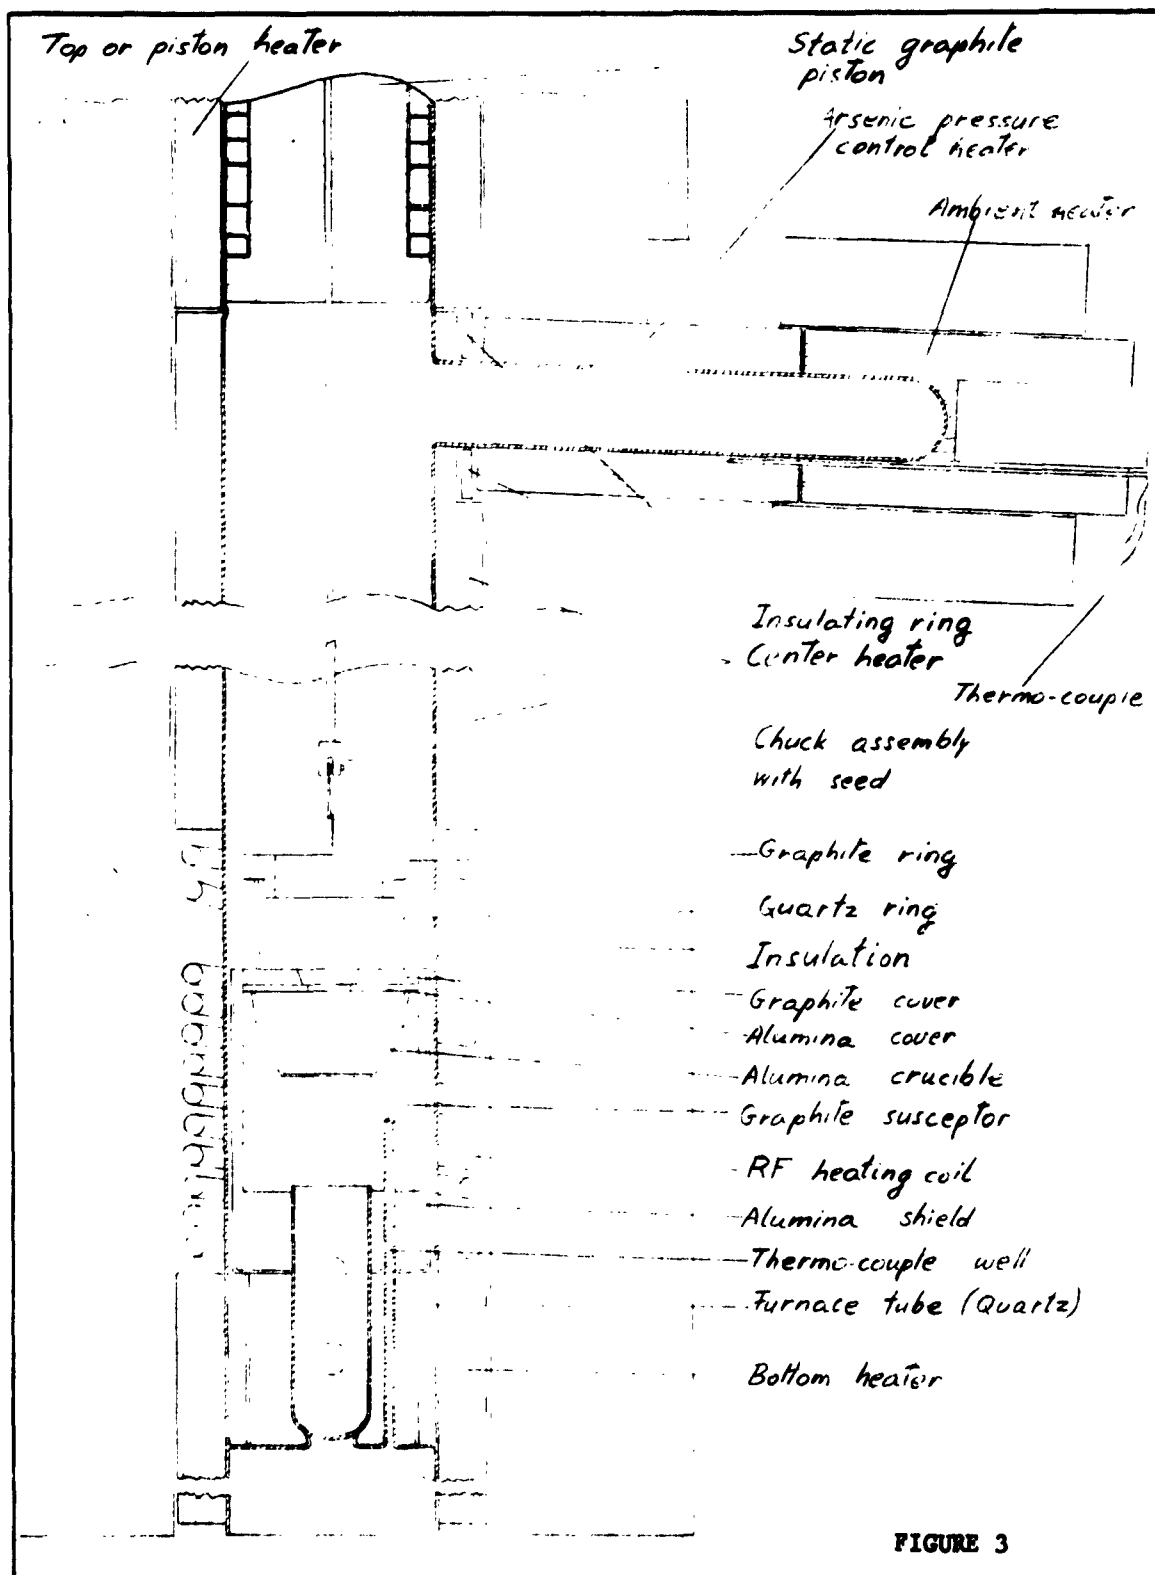 Top or piston heater
Static graphite
piston
Arsenic pressure
control heater
Ambient heater
Insulating ring
Center heater
Thermo-couple
Chuck assembly
with seed
Graphite ring
Quartz ring
Insulation
Graphite cover
Alumina cover
Alumina crucible
Graphite susceptor
RF heating coil
Alumina shield
Thermo-couple well
Furnace tube (Quartz)
Bottom heater
FIGURE 3